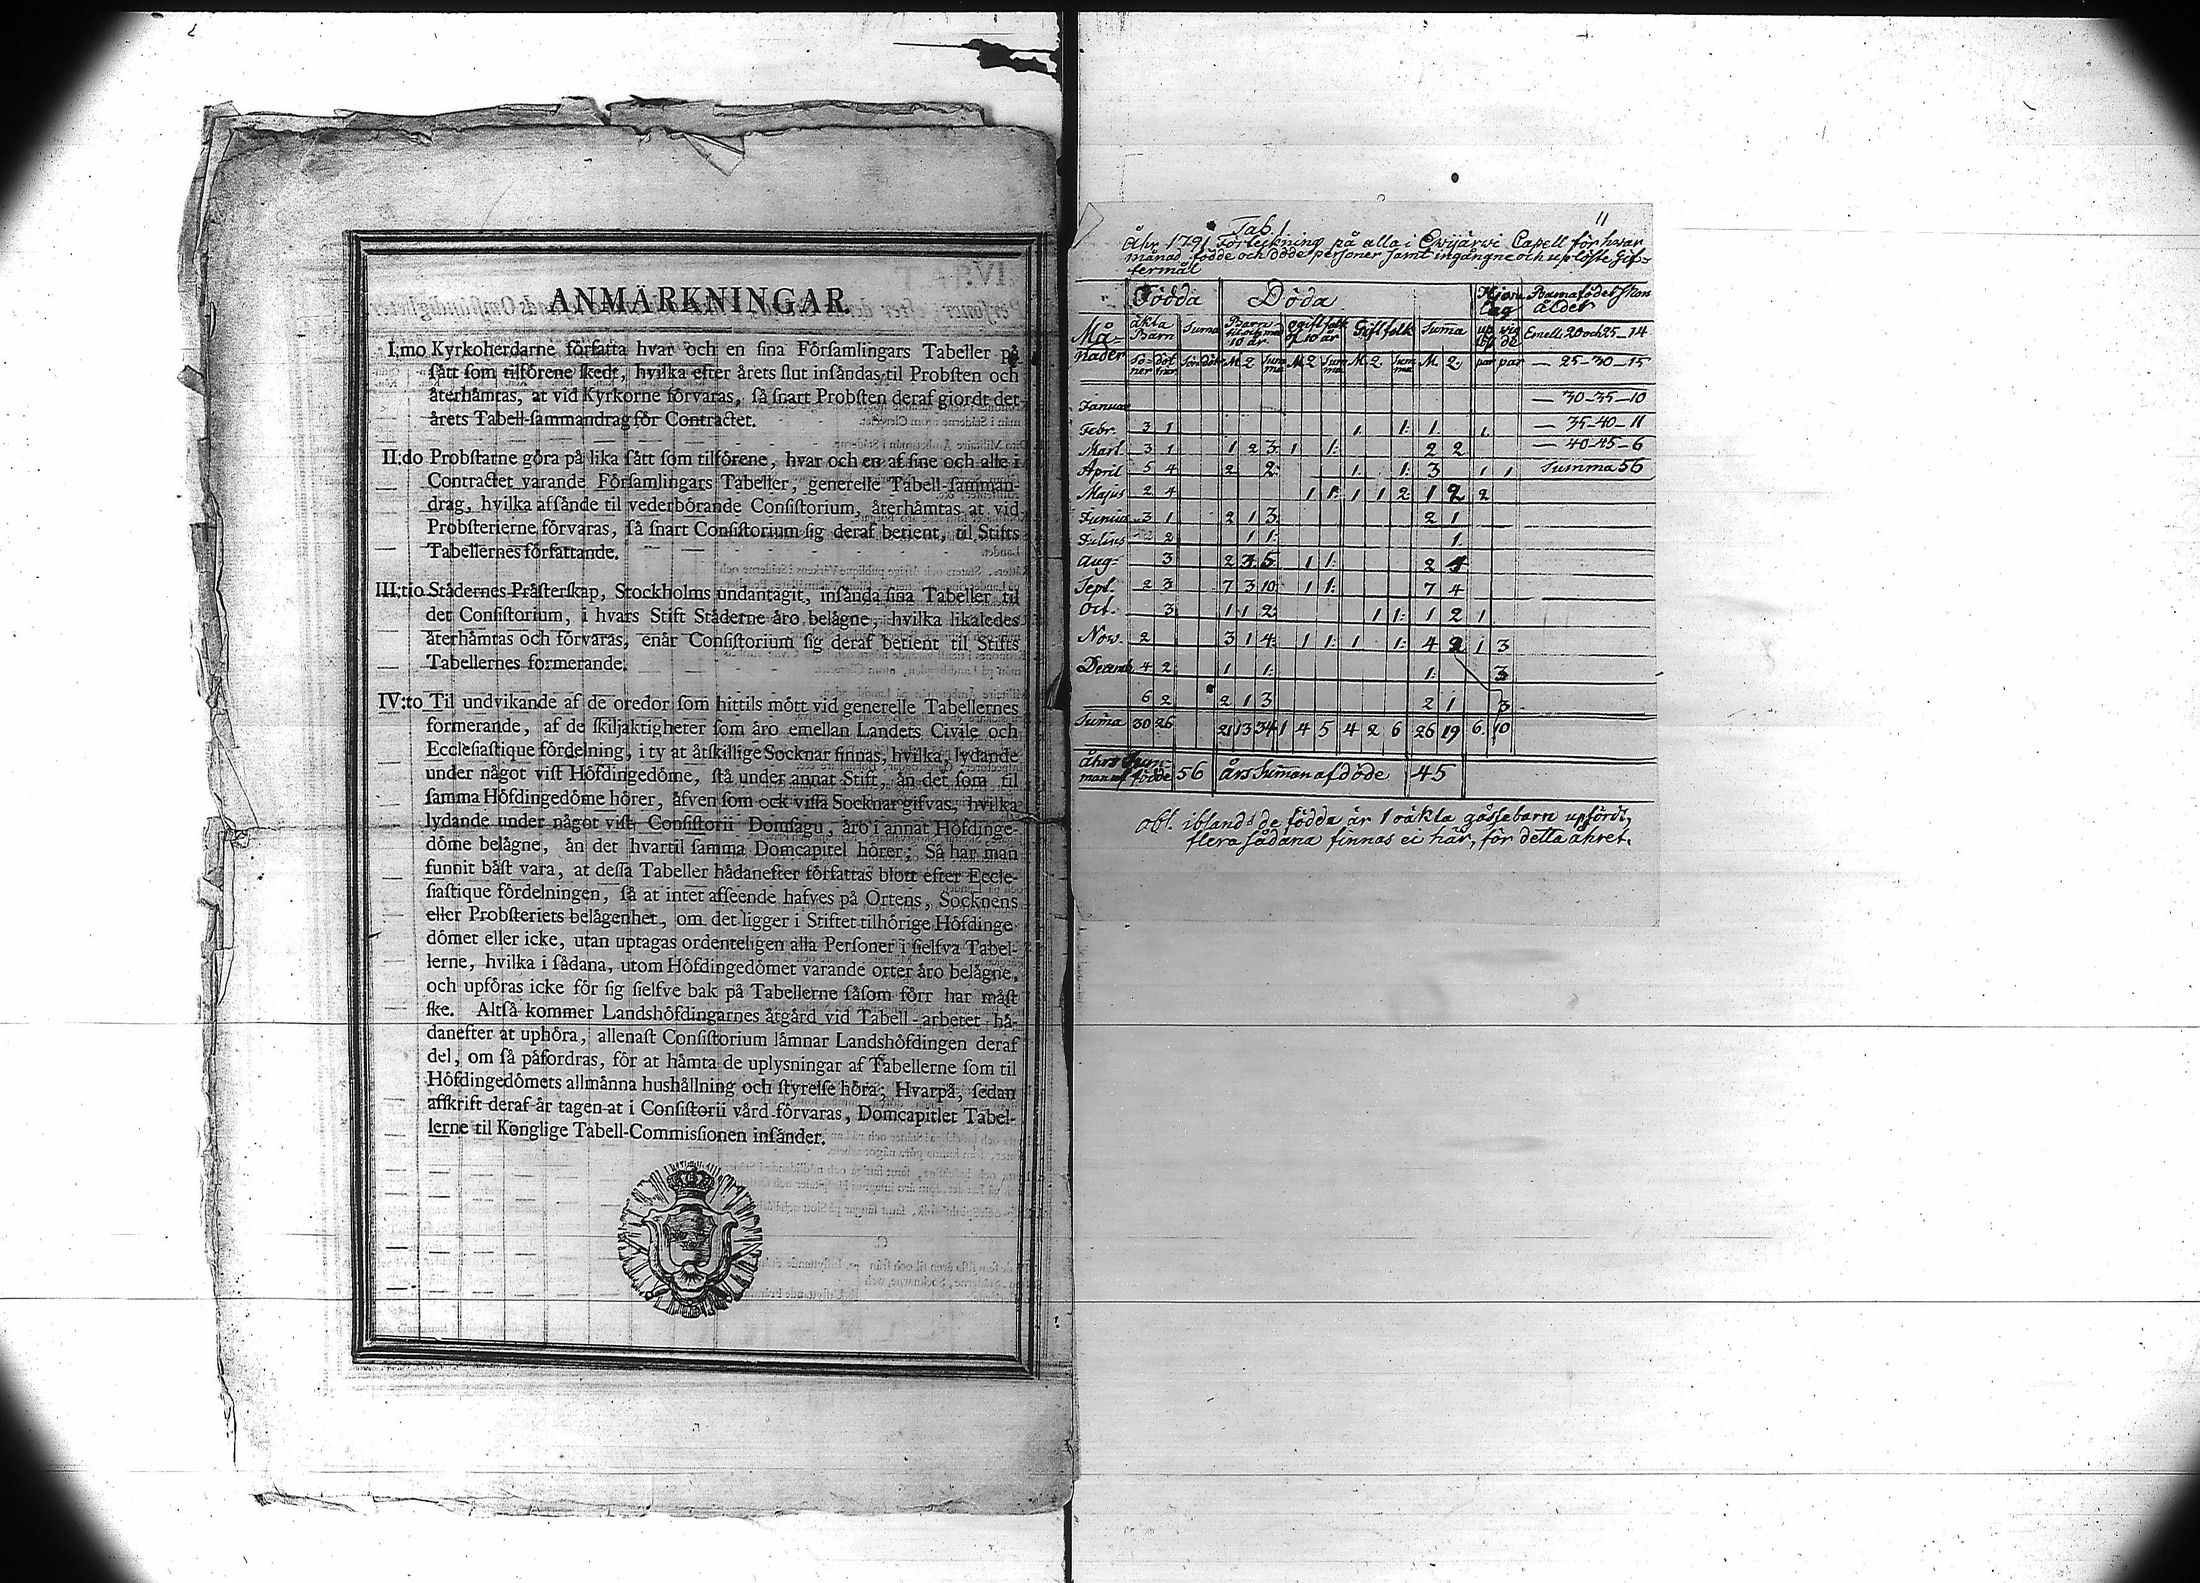 ANMÄRKNINGAR.
I:mo Kyrkoherdarne författa hvar och en sina Församlingars Tabeller på
sätt som tilförene skedt, hvilka efter årets slut insändas til Probsten och
återhämtas, at vid Kyrkorne förvaras, så snart Probsten deraf giordt det
årets Tabell-sammandrag för Contractet.
II:do Probstarne göra på lika sätt som tilförene, hvar och en af sine och alle i
Contractet varande Församlingars Tabeller, generelle Tabell-samman-
drag, hvilka afsände til vederbörande Consistorium, återhämtas at vid
Probsterierne förvaras, så snart Consistorium sig deraf betient, til Stifts
Tabellernes författande.
III:tio Städernes Prästerskap, Stockholms undantagit, insända sina Tabeller til
det Consistorium, i hvars Stift Städerne äro belägne, hvilka likaledes
återhämtas och förvaras, enär Consistorium sig deraf betient til Stifts
Tabellernes formerande.
IV:to Til undvikande af de oredor som hittils mött vid generelle Tabellernes
formerande, af de skiljaktigheter som äro emellan Landets Civile och
Ecclesiastique fördelning, i ty at åtskillige Socknar finnas, hvilka, lydande
under något vist Höfdingedöme, stå under annat Stift, än det som til
samma Höfdingedöme hörer, äfven som ock vissa Socknar gifvas, hvilka
lydande under något vist Consistorii Domsagu, äro i annat Höfdinge-
döme belägne, än det hvartil samma Domcapitel hörer; Så har man
funnit bäst vara, at dessa Tabeller hädanefter författas blott efter Eccle-
siastique fördelningen, så at intet afseende hafves på Ortens, Socknens
eller Probsteriets belägenhet, om det ligger i Stiftet tilhörige Höfdinge
dömet eller icke, utan uptagas ordenteligen alla Personer i sielfva Tabel-
lerne, hvilka i sådana, utom Höfdingedömet varande orter äro belägne,
och upföras icke för sig sielfve bak på Tabellerne såsom förr har mäst
ske. Altså kommer Landshöfdingarnes åtgärd vid Tabell-arbetet hä-
danefter at uphöra, allenast Consistorium lämnar Landshöfdingen deraf
del, om så påfordras, för at hämta de uplysningar af Tabellerne som til
Höfdingedömets allmänna hushållning och styrelse höra; Hvarpå, sedan
afskrift deraf är tagen at i Consistorii vård förvaras, Domcapitlet Tabel-
lerne til Konglige Tabell-Commissionen insänder.
11
Tab. 1.
Åhr 1791 Förteckning på alla i Ewijärwi Capell för hwar
månad födde och döde personer samt ingångne och uplöste Gif-
termål
Födda Döda Hjona lag Barnaföderskon ålder
Må- nader äkta Barn Suma Barn til och med 10 år ogift folk öf. 10 år Gift folk Suma Emell: 20 och 25 – 14
Sö- ner döt trar Sön döt M. 2 Sum ma M. 2 Sum ma M. 2 Sum ma M. 2 par par — 25 – 30 – 15
Januar — 30 – 35 – 10
Febr. 3 1 1. 1. 1. 1. — 35 – 40 – 11
Mart. 3 1 1 2 3. 1 1. 2 2 — 40 – 45 – 6
April 5 4 2 2. 1. 1. 3 1 1 Summa 56
Majus 2 4 1 1. 1 1 2 1 2 2
Junius 3 1 2 1 3 2 1
Julius 2 1 1. 1.
Aug: 3 2 3 5 1 1. 2 4
Sept. 2 3 7 3 10 1 1. 7 4
Oct. 3 1 1 2. 1 1. 1 2 1
Now. 2 3 1 4. 1 1. 1 1. 4 2 1 3
Decemb. 4 2 1 1. 1. 3
6 2 2 1 3 2 1 3
Suma 30 26 21 13 34 1 4 5 4 2 6 26 19 6. 10
åhrs Sum- man af födde 56 års Suman af döde 45
obs. ibland de födda är 1 oäkta gässebarn upfördt,
flera sådana finnas ei här, för detta åhret.